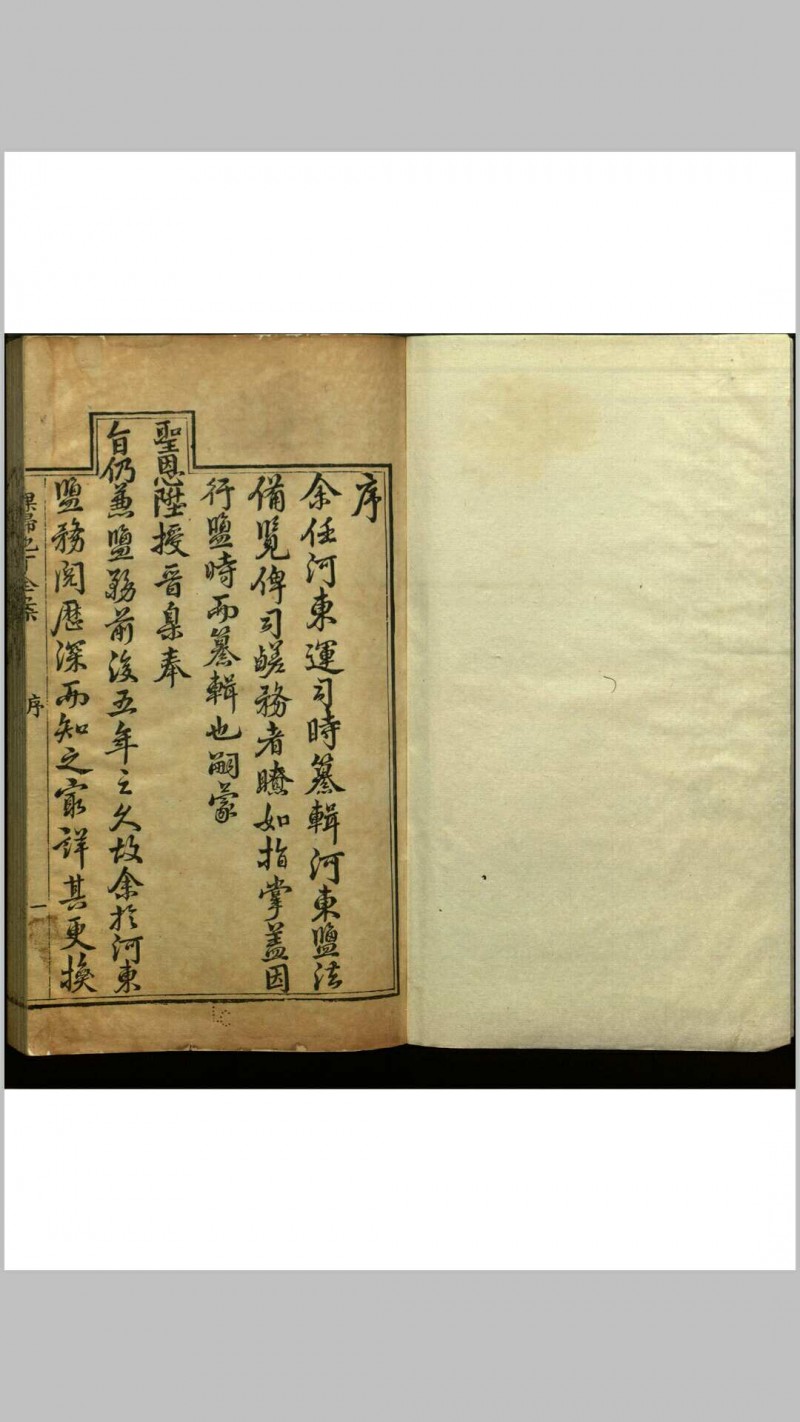 序
余任河東運司時纂輯河東鹽法
備覽俾司鹺務者瞭如指掌蓋因
行鹽時而纂輯也嗣蒙
聖恩陞授晉臬奉
旨仍兼鹽務前後五年之久故余於河東
鹽務閱歷深而知之最詳其更換
課歸地丁全案
序
一